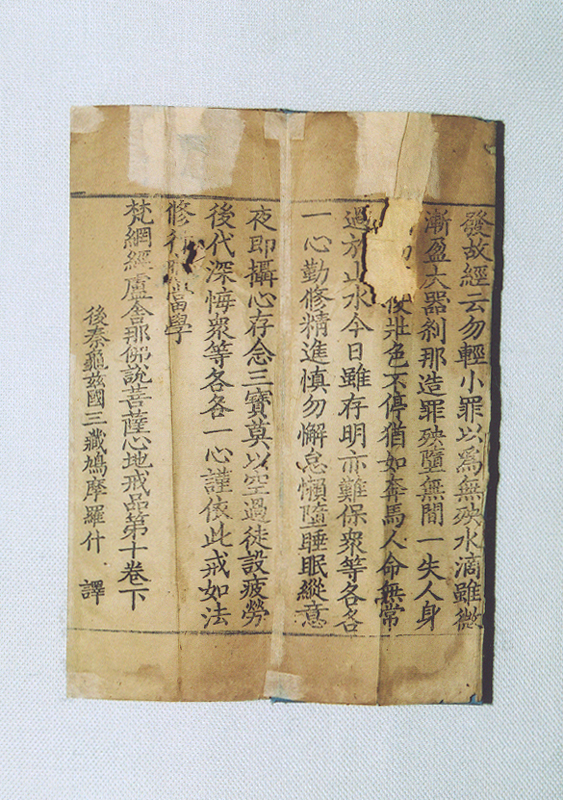 發故經云勿輕小罪以爲無殃水滴雖微
漸盈大器刹那造罪殃墮無間一失人身
復壯色不停猶如奔馬人命無常
過於山水今日雖存明亦難保衆等各各
一心勤修精進慎勿懈怠懶墮睡眠縱意
夜即攝心存念三寶莫以空過徒設疲勞
後代深悔衆等各各一心謹依此戒如法
修行當學
梵網經盧舍那佛說菩薩心地戒品第十卷下
後秦龜茲國三藏鳩摩羅什 譯